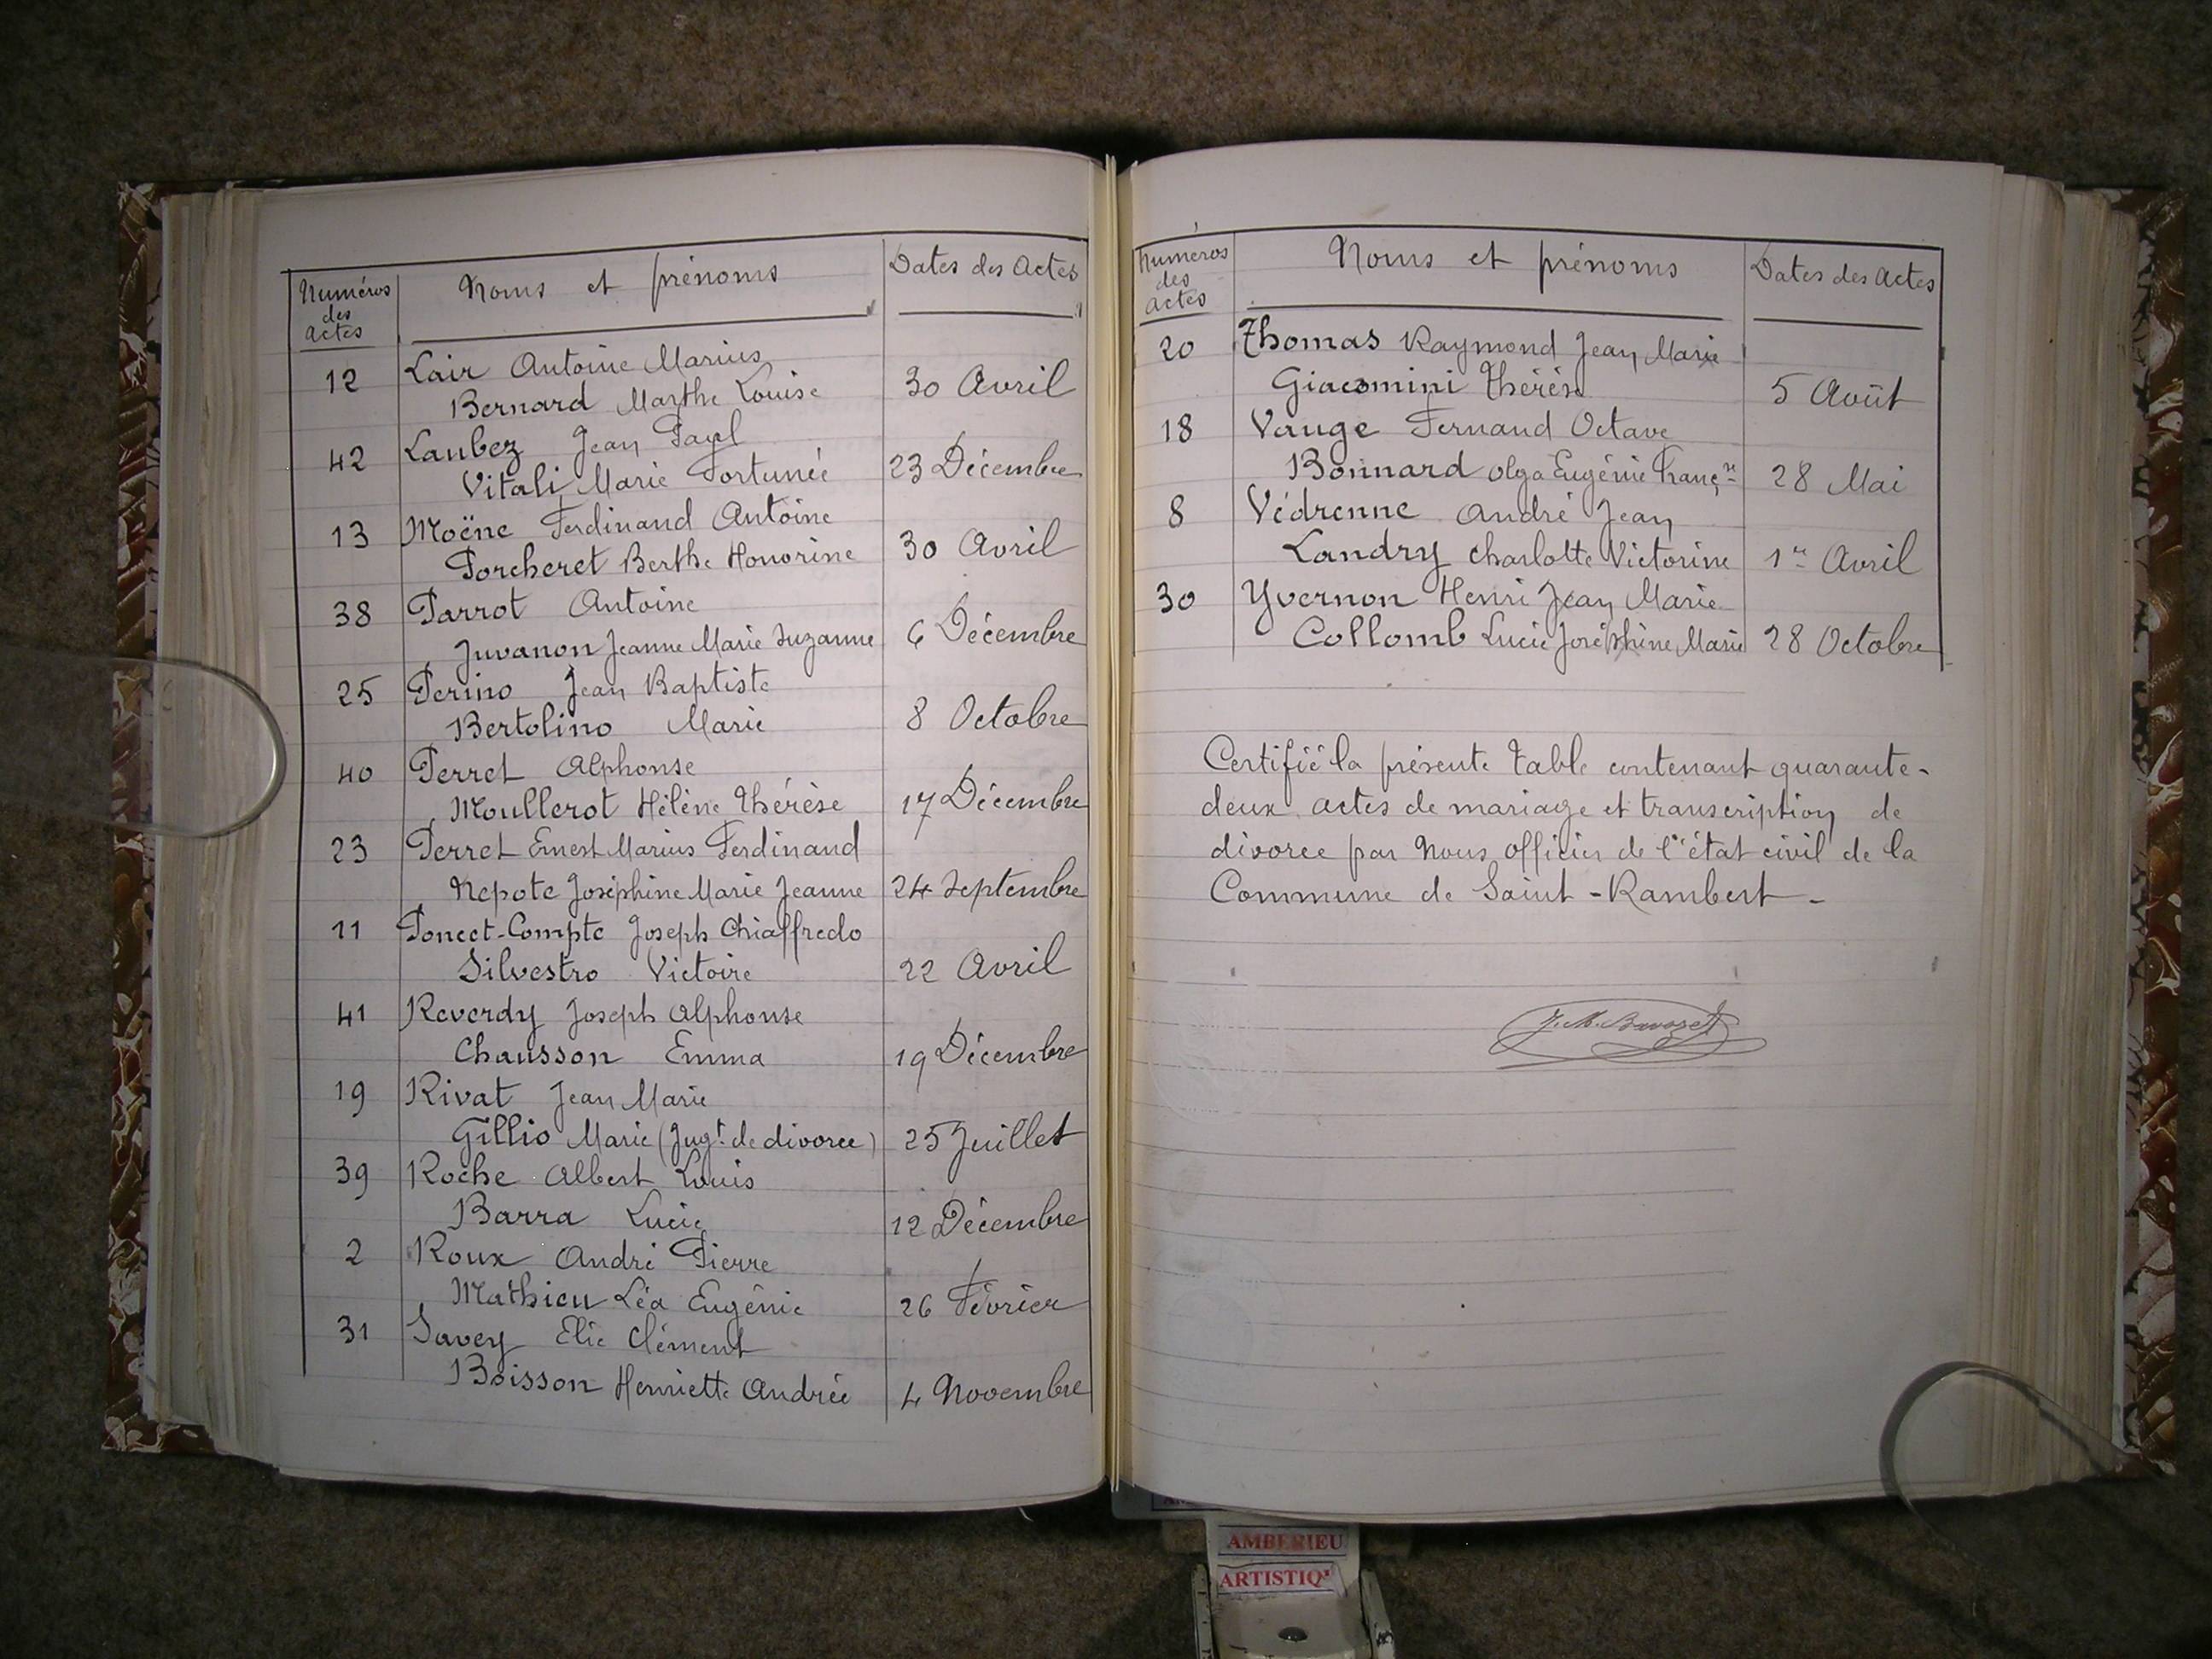 Numéros des actes Noms et prénoms Dates des Actes
12 Lair Antoine Marius
Bernard Marthe Louise 30 Avril
42 Laubez Jean Paul
Vitali Marie Fortunée 23 Décembre
13 Moëne Ferdinand Antoine
Porcheret Berthe Honorine 30 Avril
38 Parrot Antoine
Juvanon Jeanne Marie Suzanne 6 Décembre
25 Perino Jean Baptiste
Bertolino Marie 8 Octobre
40 Perret Alphonse
Moullerot Hélène Thérèse 17 Décembre
23 Perret Ernest Marius Ferdinand
Nepote Joséphine Marie Jeanne 24 Septembre
11 Poncet-Compte Joseph Chiaffredo
Silvestro Victoire 22 Avril
41 Reverdy Joseph Alphonse
Chausson Emma 19 Décembre
19 Rivat Jean Marie
Gillio Marie (Jugt de divorce) 25 Juillet
39 Roche Albert Louis
Barra Lucie 12 Décembre
2 Roux André Pierre
Mathieu Léa Eugénie 26 Février
31 Savey Elie Clément
Boisson Henriette Andrée 4 Novembre
Numéros des actes Noms et prénoms Dates des Actes
20 Thomas Raymond Jean Marie
Giacomini Thérèse 5 Août
18 Vauge Fernand Octave
Bonnard Olga Eugénie Franç.se 28 Mai
8 Védrenne André Jean
Landry Charlotte Victorine 1er Avril
30 Yvernon Henri Jean Marie
Collomb Lucie Joséphine Marie 28 Octobre
Certifié la présente table contenant quarante-
deux actes de mariage et transcription de
divorce par Nous officier de l'état civil de la
Commune de Saint-Rambert-
J. M. Bavozet
AMBERIEU
ARTISTIQ